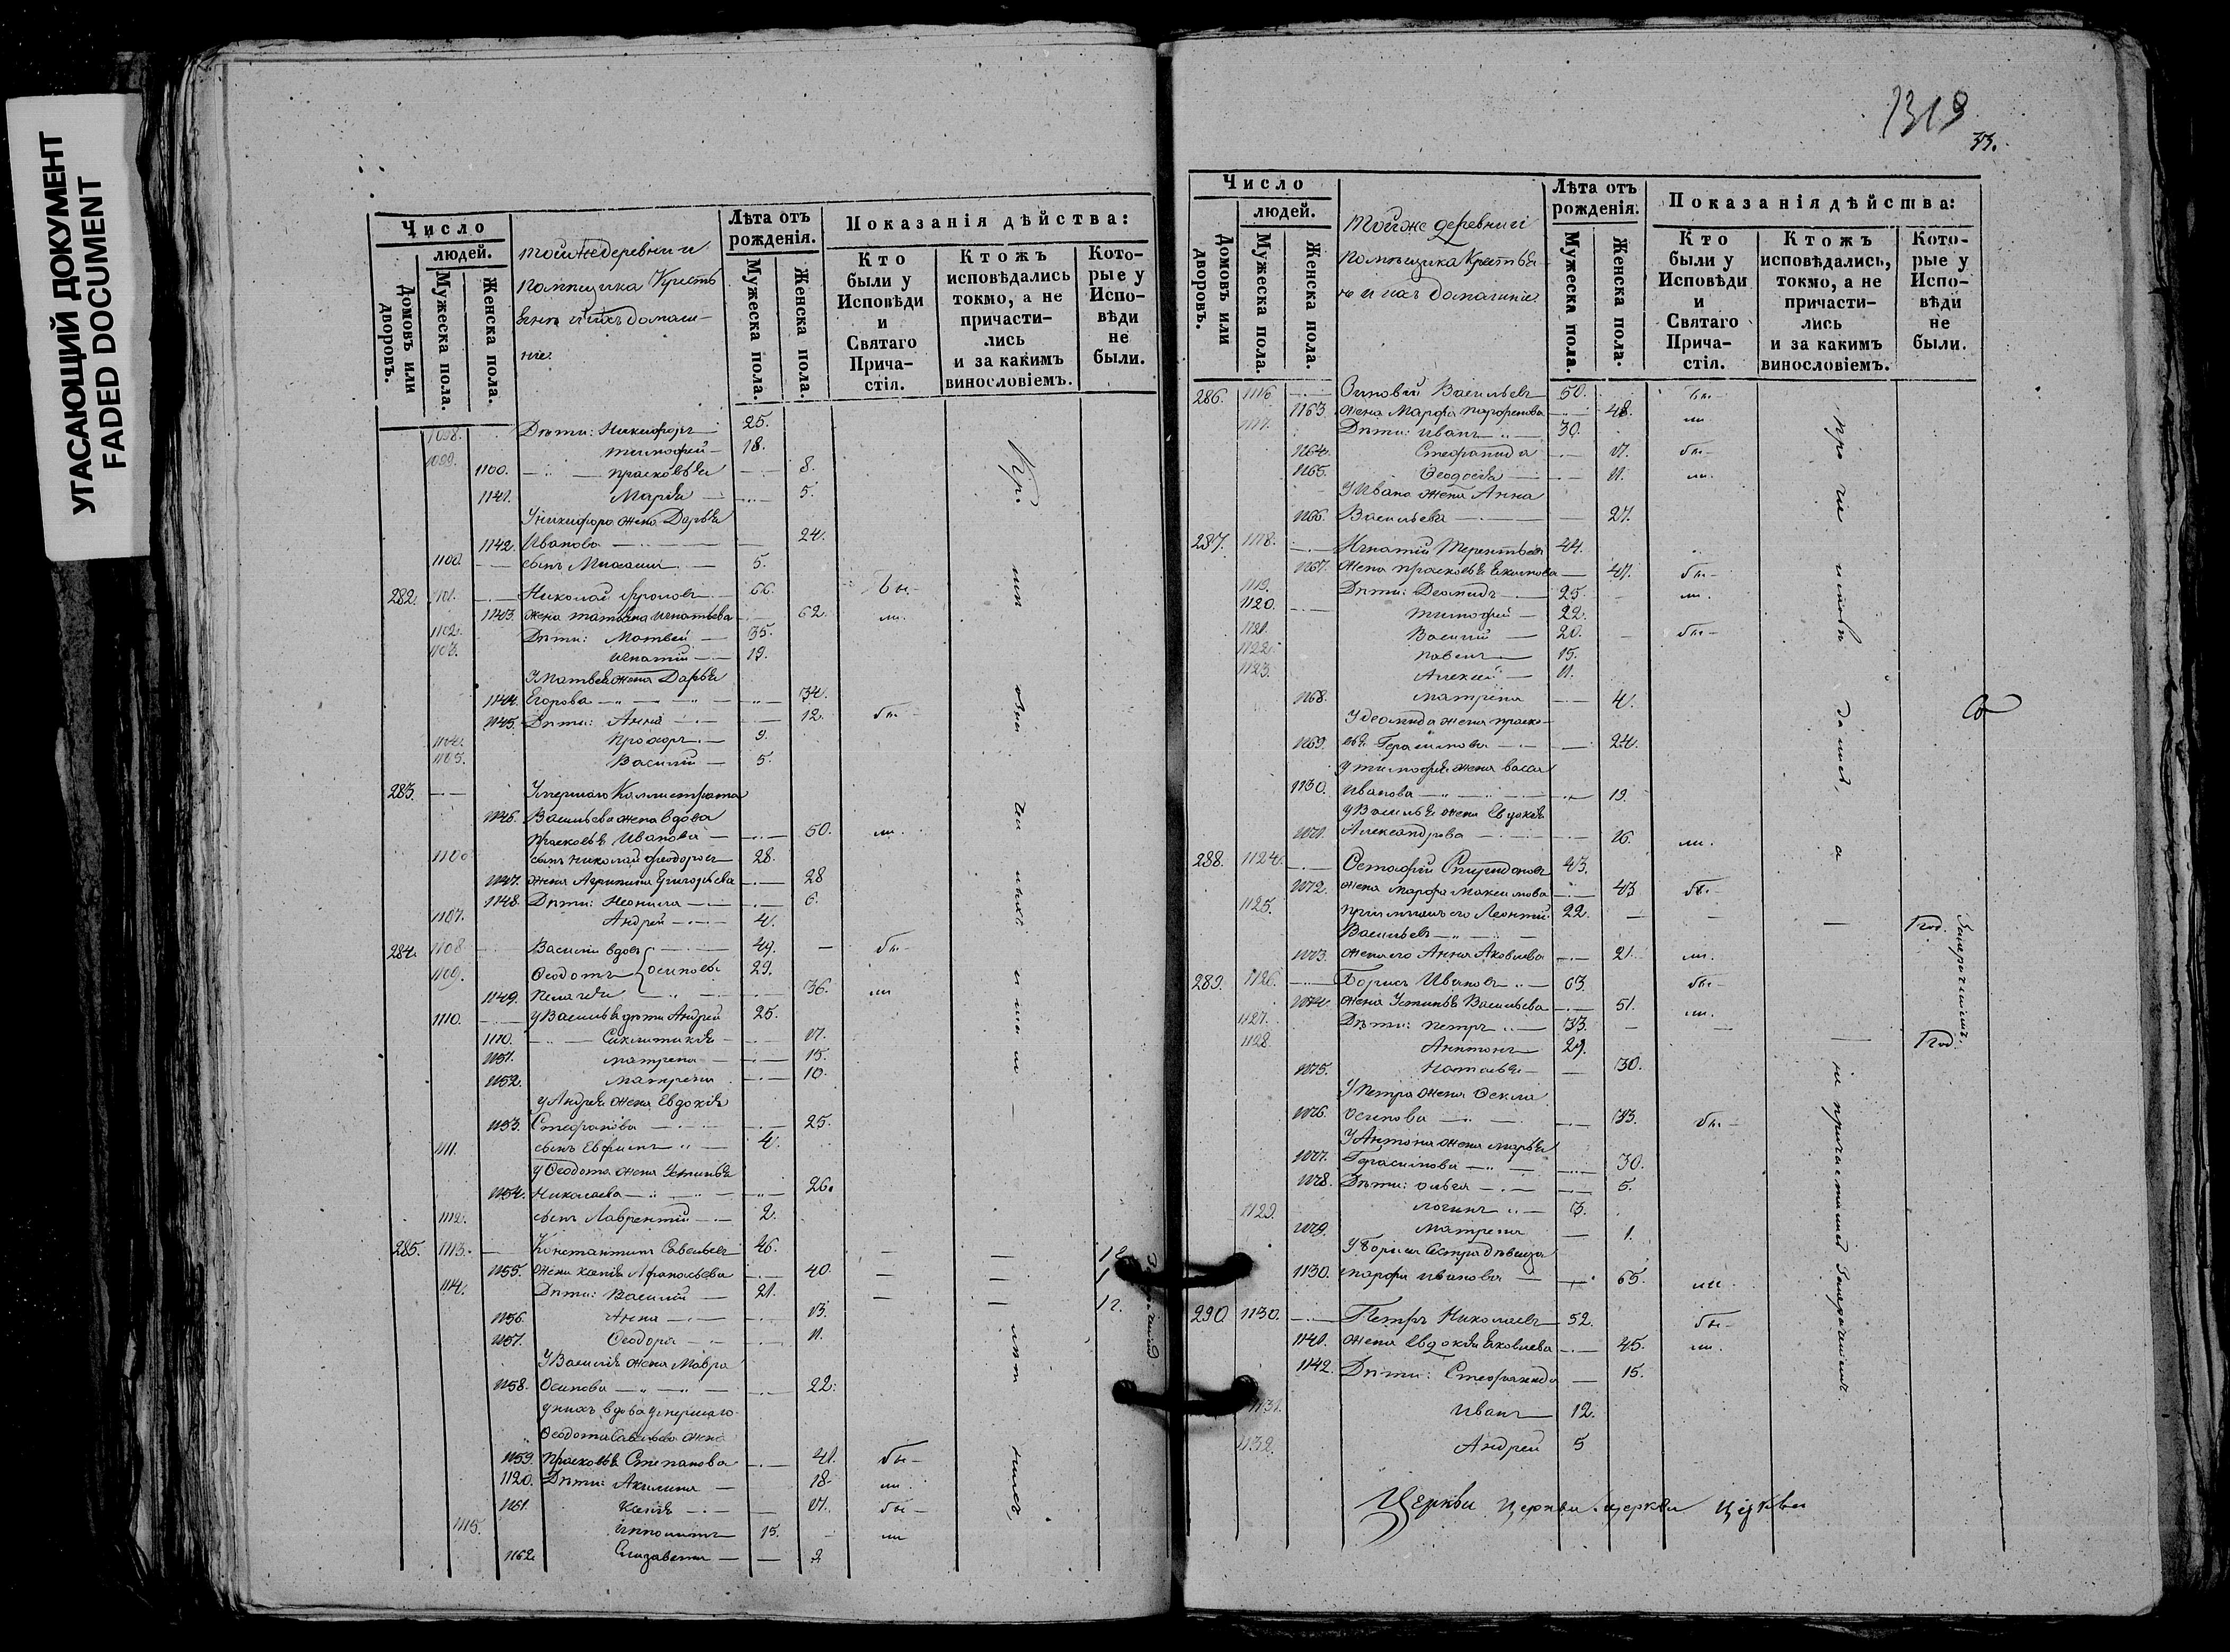 УГАСАЮЩИЙ ДОКУМЕНТ
FADED DOCUMENT
Число
людей.
Домовъ или дворовъ.
Мужеска пола.
Женска пола.
тойже деревни и
помѣщика Кресть
яне и ихъ домаш-
ніе
Лѣта отъ рожденія.
Мужеска пола.
Женска пола.
Показанія дѣйства:
Кто были у Исповѣди и Святаго Прича-стія.
Ктожъ исповѣдались токмо, а не причасти-лись и за какимъ винословіемъ.
Кото-рые у Испо-вѣди не были.
1098. Дѣти: Никифоръ 25.
1099. Тимофей 18.
1100. Прасковья 8.
1141. Марья 5.
У Никифора жена Дарья
1142. Иванова 24.
1100 сынъ Михаилъ 5.
282. 1101. Николай Фроловъ 66. бы-
1143. жена Татьяна Игнатьева 62. ли.
1102. Дѣти: Матвей 35.
1103. Игнатій 19.
У Матвея жена Дарья
1144. Егорова 34.
1145. Дѣти: Анна 12. бы-
1104. Прохоръ 9.
1105. Василій 5.
283. Умершаго Каллистрата
1146. Васильева жена вдова
Прасковья Иванова 50. ли.
1106 сынъ Николай Феодоровъ 28.
1147. жена Агрипина Григорьева 28
1148. Дѣти: Неонила 6.
1107. Андрей 4.
284. 1108 Василій вдовъ 49. бы-
1109. Феодотъ Осиповы 29.
1149. Пелагея 36. ли
1110. У Василья дѣти Андрей 25.
1110. Сиклитикія 17.
1151. Матрена 15.
1152. Матрена 10.
У Андрея жена Евдокія
1153. Стефанова 25.
1111. сынъ Евфимъ 4.
У Феодота жена Устинья
1154. Николаева 26.
1112. сынъ Лаврентій 2.
285. 1113. Константинъ Савельевъ 46.
1155. жена Ксенія Афанасьева 40.
1114. Дѣти: Василій 21.
1156. Анна 13.
1157. Феодора 11.
У Василія жена Мавра
1158. Осипова 22.
у нихъ вдова умершаго
Феодота Савельева жена
1159. Прасковья Степанова 41. бы-
1120. Дѣти: Акилина 18. ли
1161. Ксенія 17. бы-
1115. Ипполитъ 15. ли
1162 Елизавета 2
1319
33.
Число
людей.
Домовъ или дворовъ.
Мужеска пола.
Женска пола.
Тойже деревни и
помѣщика Крестья
не и ихъ домашніе.
Лѣта отъ рожденія.
Мужеска пола.
Женска пола.
Показанія дѣйства:
Кто были у Исповѣди и Святаго Прича-стія.
Ктожъ исповѣдались, токмо, а не причасти-лись и за какимъ винословіемъ.
Кото-рые у Испо-вѣди не были.
286. 1116 Зиновій Васильевъ 50. бы-
1163. жена Марфа Парфенова 48. ли
1117. Дѣти: Иванъ 30.
1164. Стефанида 17. бы-
1165. Феодосья 11. ли.
У Ивана жена Анна
1166. Васильева 27.
287. 1118. Игнатій Терентьевъ 44.
1167. жена Прасковья Екимова 47. бы-
1119. Дѣти: Деомидъ 25. ли.
1120. Тимофей 22.
1121. Василій 20. бы-
1122. Павелъ 15.
1123. Алексей 11.
1168. Матрена 4.
У Деомида жена Праско-
1169. вья Герасимова 24.
У Тимофея жена Васса
1130. Иванова 19.
У Василья жена Евдокія
1171. Александрова 16. ли.
288. 1124. Остафій Спиридоновъ 43.
1172. жена Марфа Максимова 43 бы-
1125. пріимышъ его Леонтій 22. 1 год.
Васильевъ
1173. жена его Анна Яковлева 21. ли.
289. 1126. Борисъ Ивановъ 63. бы-
1174. жена Устинья Васильева 51. ли.
1127. Дѣти: Петръ 33.
1128. Антонъ 29. 1 год.
1175. Наталья 30.
У Петра жена Фекла
1176. Осипова 33. бы-
У Антона жена Марья
1177. Герасимова 30.
1178. Дѣти: Ольга 5.
1129. Логинъ 3.
1179. Матрена 1.
У Бориса сестра дѣвица
1130. Марфа Иванова 65. ли
290 1130. Петръ Николаевъ 52. бы-
1141. жена Евдокія Яковлева 45. ли.
1142. Дѣти: Стефанида 15.
1131. Иванъ 12.
1132. Андрей 5
Церкви Церкви Церкви Церкви